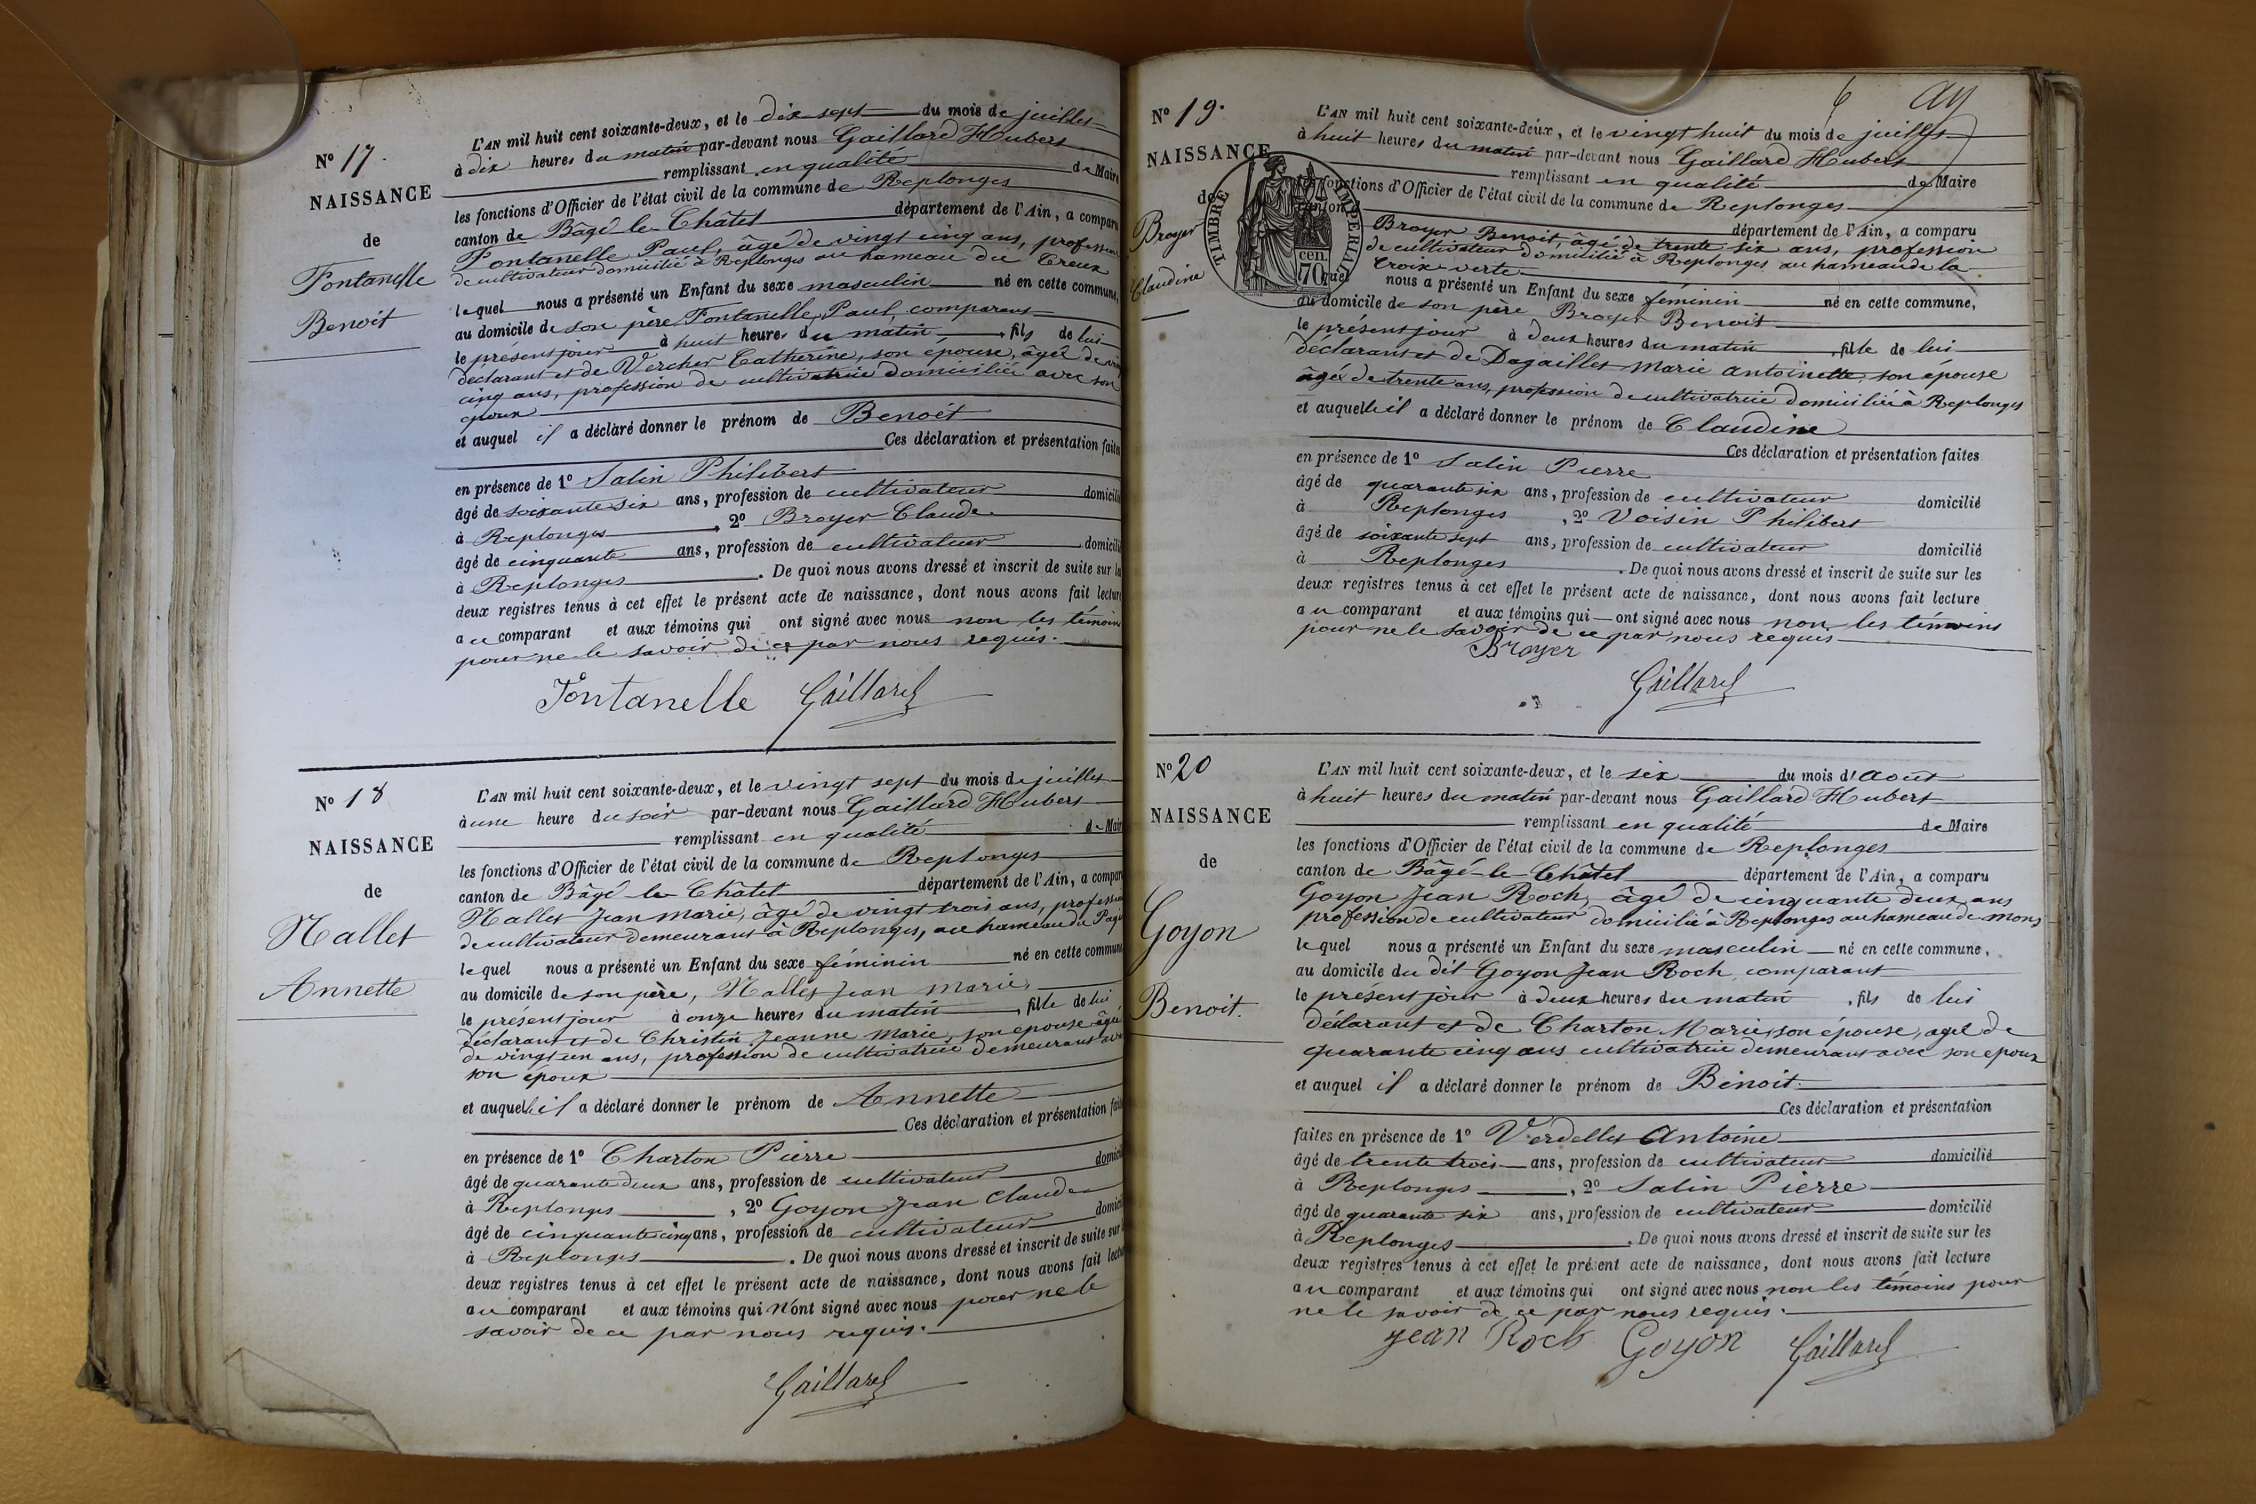 N° 17.
NAISSANCE
de
Fontanelle
Benoit
L'AN mil huit cent soixante-deux, et le dix sept du mois de juillet
à dix heures du matin par-devant nous Gaillard Hubert
remplissant en qualité de Maire
les fonctions d'Officier de l'état civil de la commune de Replonges
canton de Bâgé-le-Châtel département de l'Ain, a comparu
Fontanelle Paul, âgé de vingt cinq ans, profession
de cultivateur domicilié à Replonges au hameau du Creux
lequel nous a présenté un Enfant du sexe masculin né en cette commune,
au domicile de son père Fontanelle Paul, comparant
le présent jour à huit heures du matin, fils de lui
déclarant et de Vercher Catherine, son épouse, âgée de vingt
cinq ans, profession de cultivatrice domiciliée avec son
époux
et auquel il a déclaré donner le prénom de Benoit
Ces déclaration et présentation faites
en présence de 1° Salin Philibert
âgé de soixante six ans, profession de cultivateur domicilié
à Replonges, 2° Broyer Claude
âgé de cinquante ans, profession de cultivateur domicilié
à Replonges. De quoi nous avons dressé et inscrit de suite sur les
deux registres tenus à cet effet le présent acte de naissance, dont nous avons fait lecture
au comparant et aux témoins qui ont signé avec nous non les témoins
pour ne le savoir de ce par nous requis.
Fontanelle Gaillard
N° 18
NAISSANCE
de
Nallet
Annette
L'AN mil huit cent soixante-deux, et le vingt sept du mois de juillet
à une heure du soir par-devant nous Gaillard Hubert
remplissant en qualité de Maire
les fonctions d'Officier de l'état civil de la commune de Replonges
canton de Bâgé-le-Châtel département de l'Ain, a comparu
Nallet Jean Marie, âgé de vingt trois ans, profession
de cultivateur demeurant à Replonges, au hameau du
lequel nous a présenté un Enfant du sexe féminin né en cette commune
au domicile de son père, Nallet Jean Marie,
le présent jour à onze heures du matin, fille de lui
déclarant et de Christin Jeanne Marie, son épouse âgée
de vingt un ans, profession de cultivatrice demeurant avec
son époux
et auquelle il a déclaré donner le prénom de Annette
Ces déclaration et présentation faites
en présence de 1° Charton Pierre
âgé de quarante deux ans, profession de cultivateur domicilié
à Replonges, 2° Goyon Jean Claude
âgé de cinquante cinq ans, profession de cultivateur domicilié
à Replonges. De quoi nous avons dressé et inscrit de suite sur
deux registres tenus à cet effet le présent acte de naissance, dont nous avons fait lecture
au comparant et aux témoins qui n'ont signé avec nous pour ne le
savoir de ce par nous requis.
Gaillard
6
N° 19.
NAISSANCE
de
Broyer
Claudine
TIMBRE IMPERIAL
70 cen.
L'AN mil huit cent soixante-deux, et le vingt huit du mois de juillet
à huit heures du matin par-devant nous Gaillard Hubert
remplissant en qualité de Maire
les fonctions d'Officier de l'état civil de la commune de Replonges
canton département de l'Ain, a comparu
Broyer Benoit, âgé de trente six ans, profession
de cultivateur domicilié à Replonges au hameau de la
Croix verte
quel nous a présenté un Enfant du sexe féminin né en cette commune,
du domicile de son père Broyer Benoit
le présent jour à deux heures du matin, fille de lui
déclarant et de Dagallier Marie Antoinette, son épouse
âgée de trente ans, profession de cultivatrice domiciliée à Replonges
et auquelle il a déclaré donner le prénom de Claudine
Ces déclaration et présentation faites
en présence de 1° Salin Pierre
âgé de quarante six ans, profession de cultivateur domicilié
à Replonges, 2° Voisin Philibert
âgé de soixante sept ans, profession de cultivateur domicilié
à Replonges. De quoi nous avons dressé et inscrit de suite sur les
deux registres tenus à cet effet le présent acte de naissance, dont nous avons fait lecture
au comparant et aux témoins qui ont signé avec nous non les témoins
pour ne le savoir de ce par nous requis
Broyer
Gaillard
N° 20
NAISSANCE
de
Goyon
Benoit.
L'AN mil huit cent soixante-deux, et le six du mois d'Aout
à huit heures du matin par-devant nous Gaillard Hubert
remplissant en qualité de Maire
les fonctions d'Officier de l'état civil de la commune de Replonges
canton de Bâgé-le-Châtel département de l'Ain, a comparu
Goyon Jean Roch, âgé de cinquante deux ans
profession de cultivateur domicilié à Replonges au hameau de mons
lequel nous a présenté un Enfant du sexe masculin né en cette commune,
au domicile du dit Goyon Jean Roch, comparant
le présent jour à deux heures du matin, fils de lui
déclarant et de Charton Marie, son épouse, agée de
quarante cinq ans cultivatrice demeurant avec son époux
et auquel il a déclaré donner le prénom de Benoit.
Ces déclaration et présentation
faites en présence de 1° Verdellet Antoine
âgé de trente trois ans, profession de cultivateur domicilié
à Replonges, 2° Salin Pierre
âgé de quarante six ans, profession de cultivateur domicilié
à Replonges. De quoi nous avons dressé et inscrit de suite sur les
deux registres tenus à cet effet le présent acte de naissance, dont nous avons fait lecture
au comparant et aux témoins qui ont signé avec nous non les témoins pour
ne le savoir de ce par nous requis.
Jean Roch Goyon Gaillard